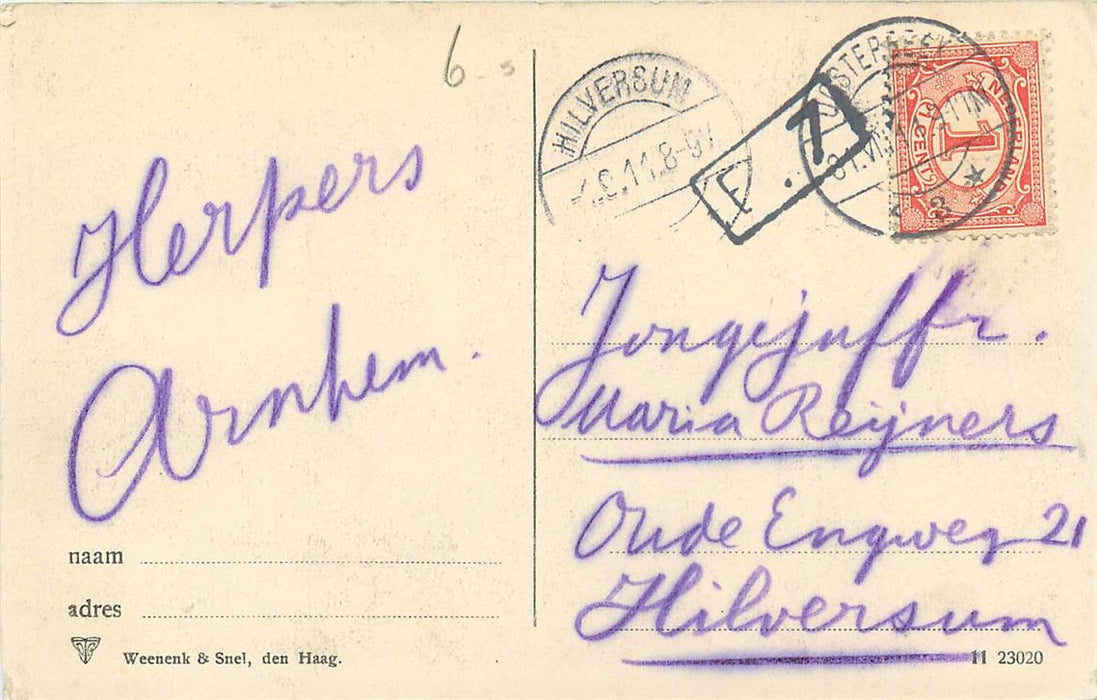 6-s
Herpers
Arnhem.
naam
adres
Weenenk & Snel, den Haag.
HILVERSUM
8-9V
F. 1
OOSTERBEEK
NEDERLAND
1 CENT
1
Jongejuffr.
Maria Reijners
Oude Engweg 21
Hilversum
11 23020